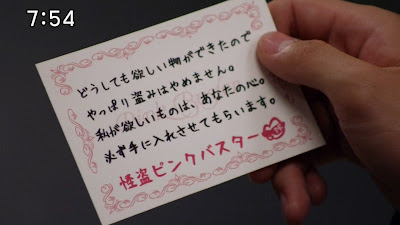 7:54
どうしても欲しい物ができたので
やっぱり盗みはやめません。
私が欲しいものは、あなたの心。
必ず手に入れさせてもらいます。
怪盗ピンクバスター